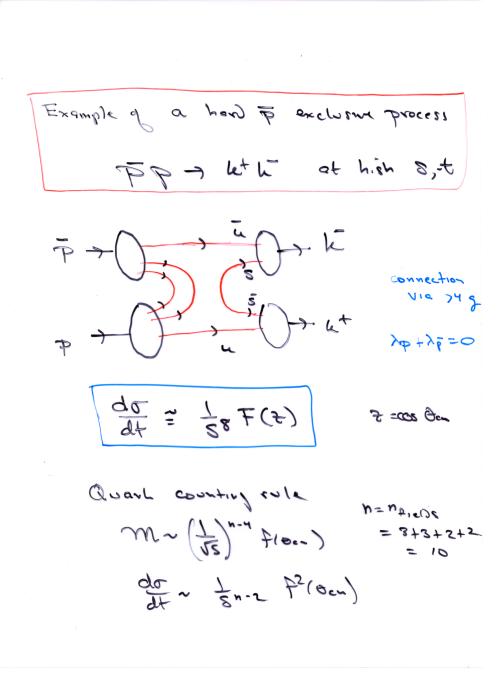 Example of a hard p̄ exclusive process
p̄ p → k⁺ k⁻ at high s, -t
p̄ → ū → k⁻
s
s̄
connection
via >4 g
p → u → k⁺
λp + λp̄ = 0
dσ/dt ≅ 1/s⁸ F(z)
z = cos θcm
Quark counting rule
n = n fields
M ~ (1/√s)ⁿ⁻⁴ f(θcm)
= 3+3+2+2
= 10
dσ/dt ~ 1/sⁿ⁻² f²(θcm)